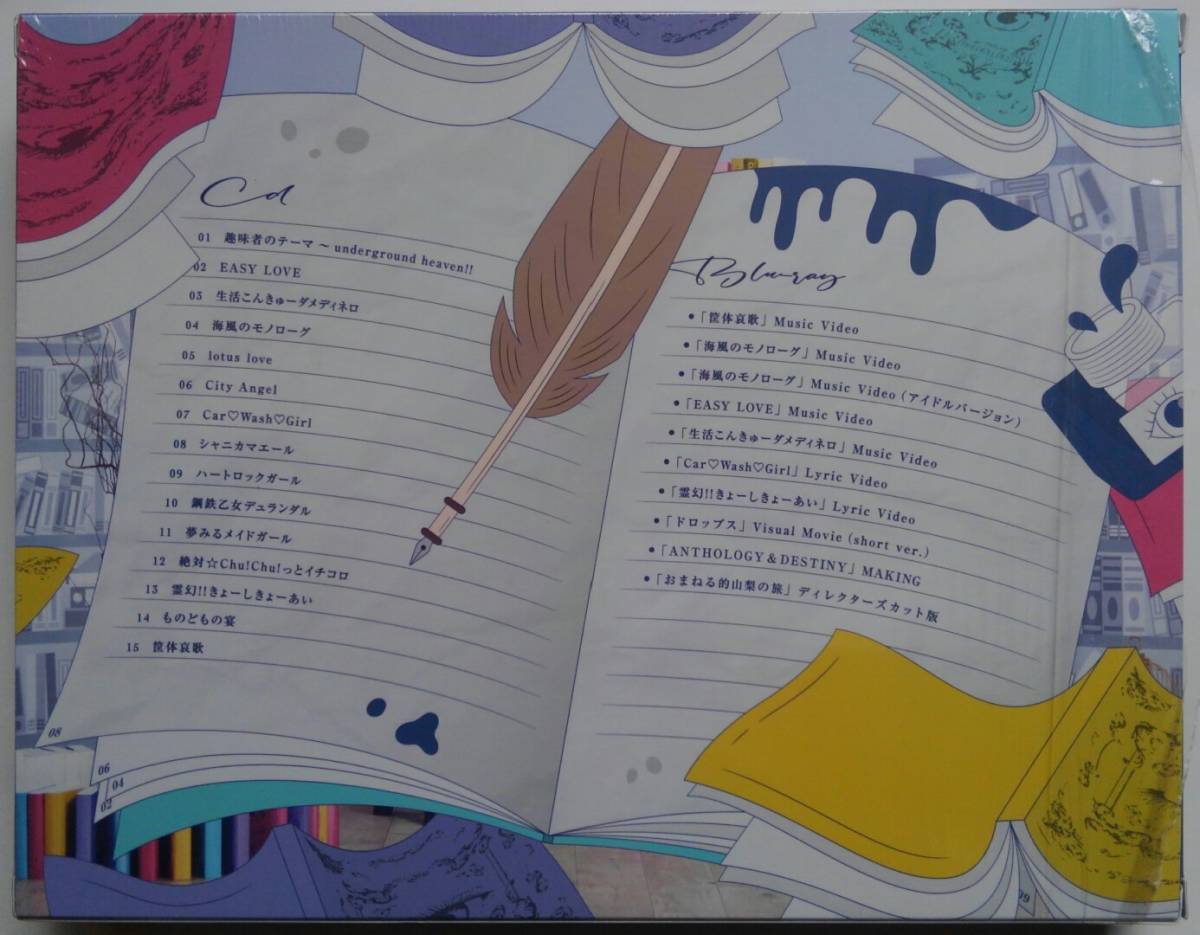 Cd
01 趣味者のテーマ ～ underground heaven!!
02 EASY LOVE
03 生活こんきゅーダメディネロ
04 海風のモノローグ
05 lotus love
06 City Angel
07 Car♡Wash♡Girl
08 シャニカマエール
09 ハートロックガール
10 鋼鉄乙女デュランダル
11 夢みるメイドガール
12 絶対☆Chu!Chu!っとイチコロ
13 霊幻!!きょーしきょーあい
14 ものどもの宴
15 筐体哀歌
08
06
04
02
Blu-ray
●「筐体哀歌」Music Video
●「海風のモノローグ」Music Video
●「海風のモノローグ」Music Video（アイドルバージョン）
●「EASY LOVE」Music Video
●「生活こんきゅーダメディネロ」Music Video
●「Car♡Wash♡Girl」Lyric Video
●「霊幻!!きょーしきょーあい」Lyric Video
●「ドロップス」Visual Movie (short ver.)
●「ANTHOLOGY＆DESTINY」MAKING
●「おまねる的山梨の旅」ディレクターズカット版
09